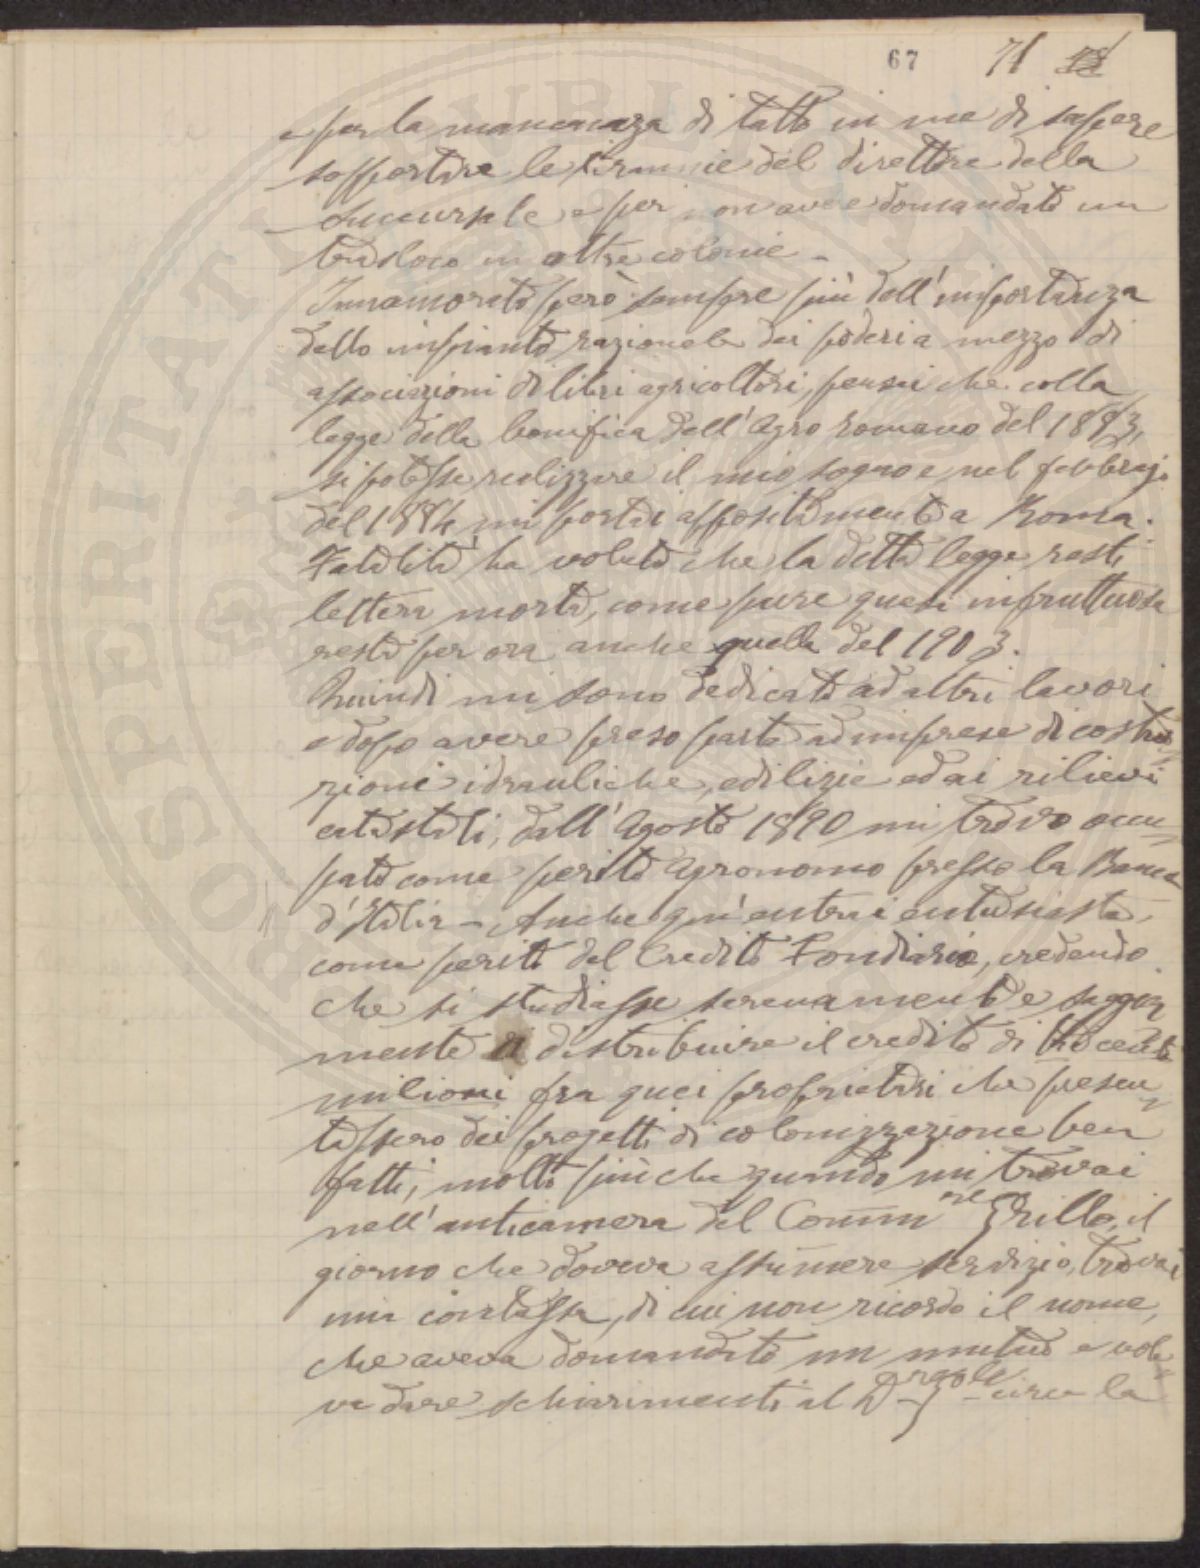 67 71
e per la mancanza di tatto in me di sapere
sopportare le tirannie del direttore della
succursale e per non avere domandato un
trasloco in altre colonie -
Innamorato però sempre più dell'importanza
dello impianto razionale dei poderi a mezzo di
associazioni di liberi agricoltori, pensai che colla
legge della bonifica dell'Agro Romano del 1883,
si potesse realizzare il mio sogno e nel febbrajo
del 1884, mi portai appositamente a Roma.
Fatalità ha voluto che la detta legge resti
lettera morta, come pure quasi infruttuosa
resta per ora anche quella del 1903.
Quindi mi sono dedicato ad altri lavori
e dopo avere preso parte ad imprese di costru-
zioni idrauliche, edilizie ed ai rilievi
catastali, dall'Agosto 1890 mi trovo occu-
pato come perito agronomo presso la Banca
d'Italia - Anche qui entrai entusiasta,
come perito del Credito Fondiario, credendo
che si studiasse serenamente e saggia
mente a distribuire il credito di trecento
milioni fra quei proprietari che presen-
tassero dei progetti di colonizzazione ben
fatti; molto più che quando mi trovai
nell'anticamera del Comm.re Grillo, il
giorno che doveva assumere servizio, trovai
una contessa, di cui non ricordo il nome,
che aveva domandato un mutuo e vole-
va dare schiarimenti al circa la